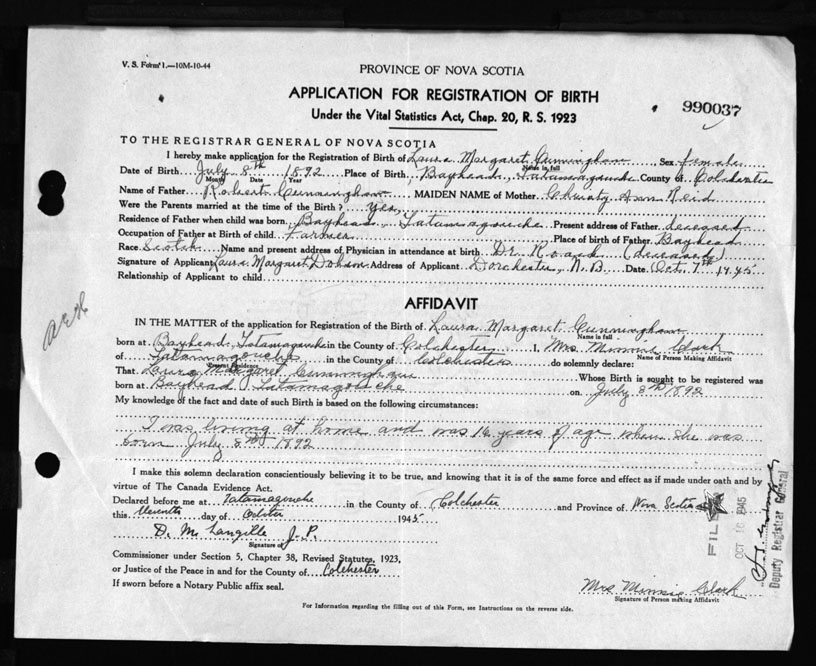 V. S. Form 1.—10M-10-44
PROVINCE OF NOVA SCOTIA
APPLICATION FOR REGISTRATION OF BIRTH
990037
Under the Vital Statistics Act, Chap. 20, R. S. 1923
TO THE REGISTRAR GENERAL OF NOVA SCOTIA
I hereby make application for the Registration of Birth of Laura Margaret Cunningham Sex female
Name in full
Date of Birth July 8th 1892 Place of Birth Bayhead, Tatamagouche County of Colchester
Month Date Year
Name of Father Robert Cunningham MAIDEN NAME of Mother Christy Ann Reid
Were the Parents married at the time of the Birth? Yes,
Residence of Father when child was born Bayhead, Tatamagouche Present address of Father deceased
Occupation of Father at Birth of child Farmer Place of birth of Father Bayhead
Race Scotch Name and present address of Physician in attendance at birth Dr. Roach (deceased)
Signature of Applicant Laura Margaret Dobson Address of Applicant Dorchester, N.B. Date Oct. 7th 1945
Relationship of Applicant to child
AFFIDAVIT
IN THE MATTER of the application for Registration of the Birth of Laura Margaret Cunningham
Name in full
born at Bayhead, Tatamagouche in the County of Colchester I, Mrs Minnie Clark
Name of Person Making Affidavit
of Tatamagouche in the County of Colchester do solemnly declare:
Present Residence
That Laura Margaret Cunningham Whose Birth is sought to be registered was
born at Bayhead Tatamagouche on July 8th 1892
My knowledge of the fact and date of such Birth is based on the following circumstances:
I was living at home and was 16 years of age when she was
born July 8th 1892
I make this solemn declaration conscientiously believing it to be true, and knowing that it is of the same force and effect as if made under oath and by
virtue of The Canada Evidence Act.
Declared before me at Tatamagouche in the County of Colchester and Province of Nova Scotia
this Eleventh day of October 1945
D. M. Langille J.P.
Signature of
Commissioner under Section 5, Chapter 38, Revised Statutes, 1923,
or Justice of the Peace in and for the County of Colchester
If sworn before a Notary Public affix seal.
Mrs Minnie Clark
Signature of Person making Affidavit
For Information regarding the filling out of this Form, see Instructions on the reverse side.
FILED
OCT 16 1945
Deputy Registrar General